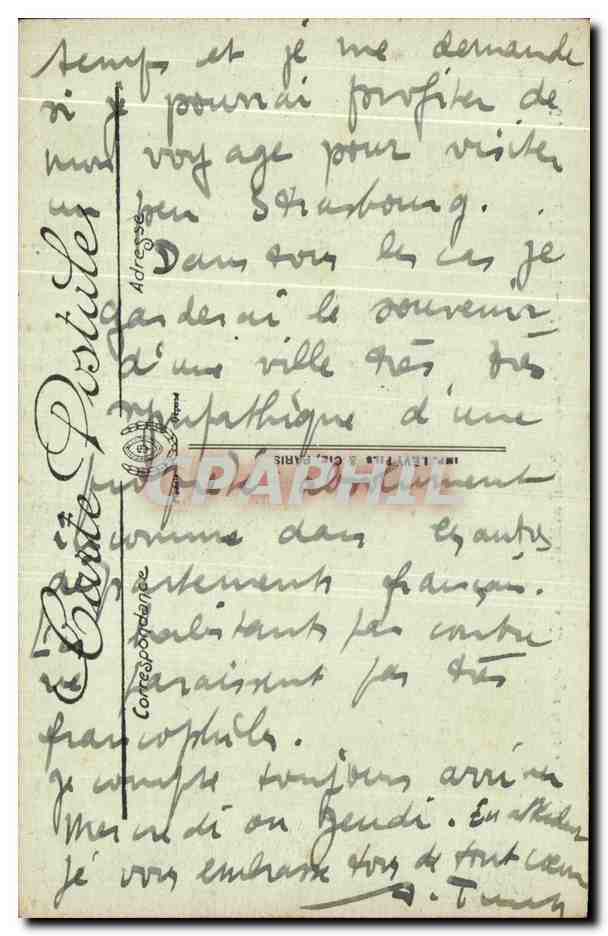 temps et je me demande
si je pourrai profiter de
mon voyage pour visiter
un peu Strasbourg.
Dans tous les cas je
garderai le souvenir
d'une ville très, très
sympathique d'une
propreté absolument
comme dans les autres
départements français.
Les habitants par contre
ne paraissent pas très
francophiles.
Je compte toujours arriver
Mercredi ou Jeudi. En attendant
je vous embrasse tous de tout cœur
Carte Postale
Correspondance
Adresse
IMP. LÉVY FILS & CIE, PARIS
CPAPHIL